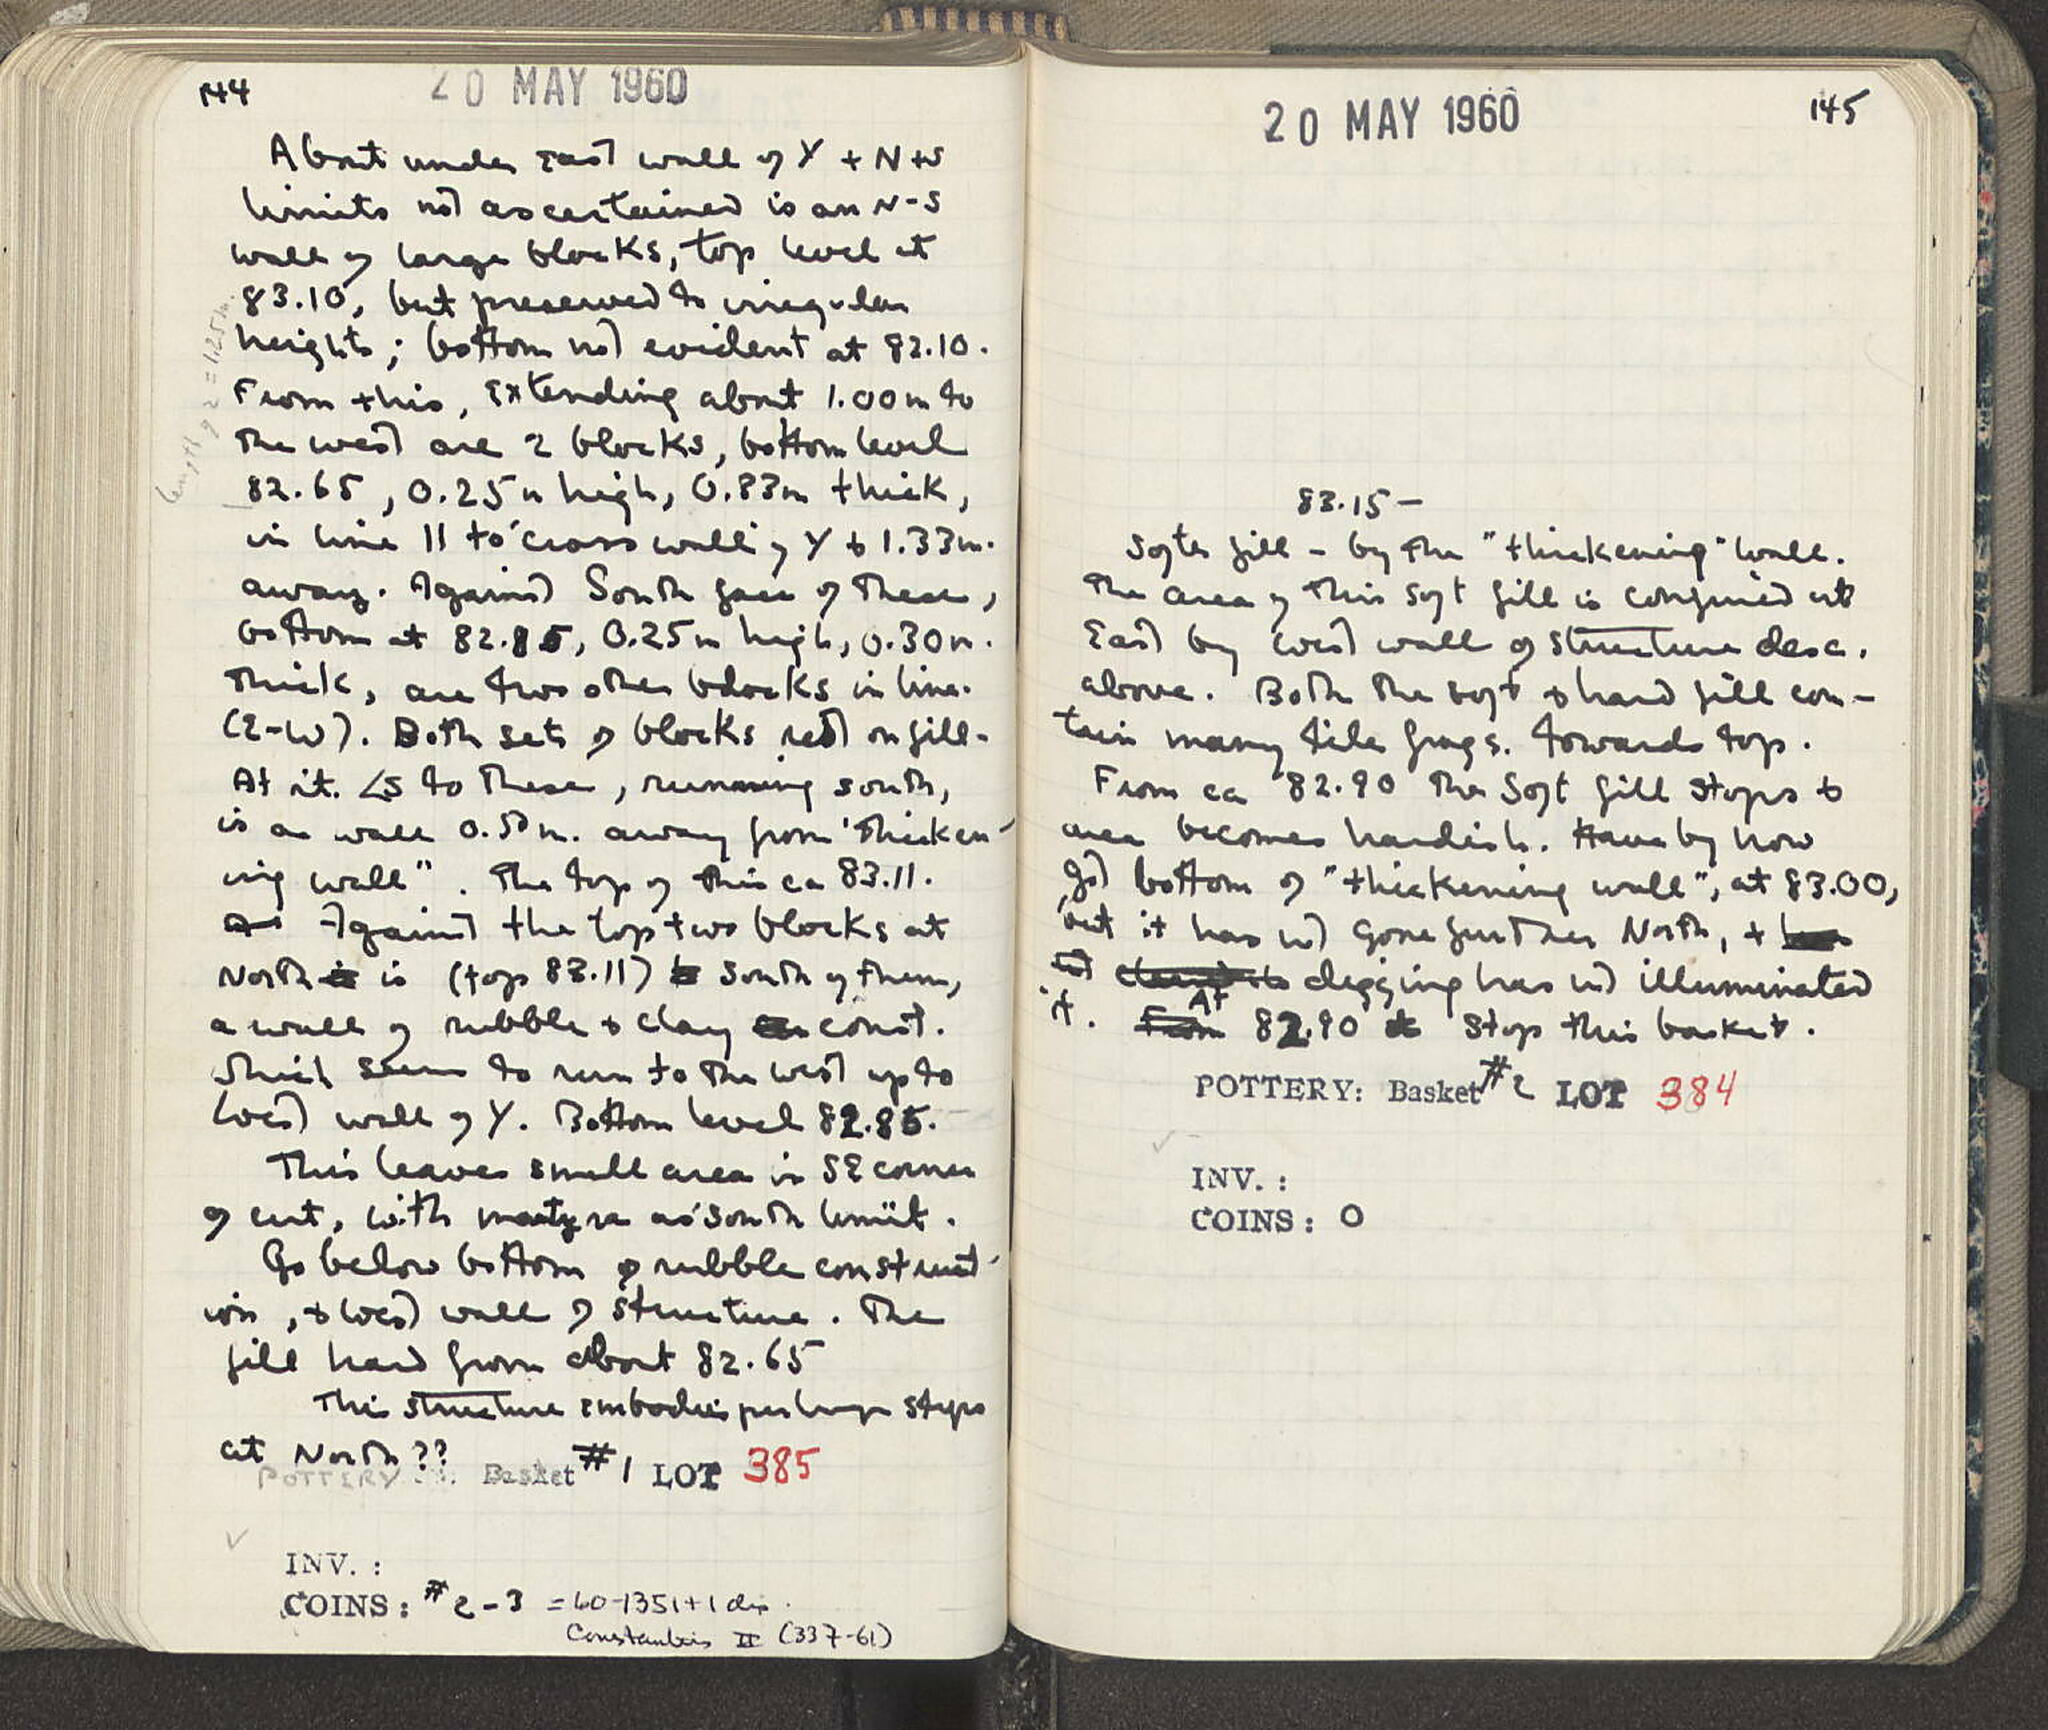 144
20 MAY 1960
About under East wall of Y + N+S
limits not ascertained is an N-S
wall of large blocks, top level at
83.10, but preserved to irregular
heights; bottom not evident at 82.10.
From this, extending about 1.00m to
the west are 2 blocks, bottom level
82.65, 0.25m high, 0.83m thick,
length of 2 = 1.25m.
in line || to cross wall of Y & 1.33m.
away. Against South face of these,
bottom at 82.85, 0.25m high, 0.30m.
thick, are two other blocks in line.
(E-W). Both sets of blocks rest on fill.
At rt. ∠s to these, running south,
is a wall 0.50m. away from "thicken-
ing wall". The top of this ca 83.11.
Against the top two blocks at
North is (top 83.11) South of them,
a wall of rubble & clay const.
which seems to run to the west up to
West wall of Y. Bottom level 82.85.
This leaves small area in SE corner
of cut, with as South limit.
Go below bottom of rubble construct-
ion, & West wall of structure. The
fill hard from about 82.65
This structure embodies perhaps steps
at North??
POTTERY: Basket #1 LOT 385
INV. :
COINS: #2-3 = 60-1351+1 dis.
Constantius II (337-61)
20 MAY 1960
145
83.15-
Softer fill - by the "thickening" wall.
The area of this soft fill is confined at
East by West wall of structure desc.
above. Both the soft & hard fill con-
tain many tile frags. towards top.
From ca 82.90 the soft fill stops &
area becomes hardish. Have by now
got bottom of "thickening wall", at 83.00,
but it has not gone further North, +
digging has not illuminated
it. At 82.90 stop this basket.
POTTERY: Basket #2 LOT 384
INV. :
COINS: 0